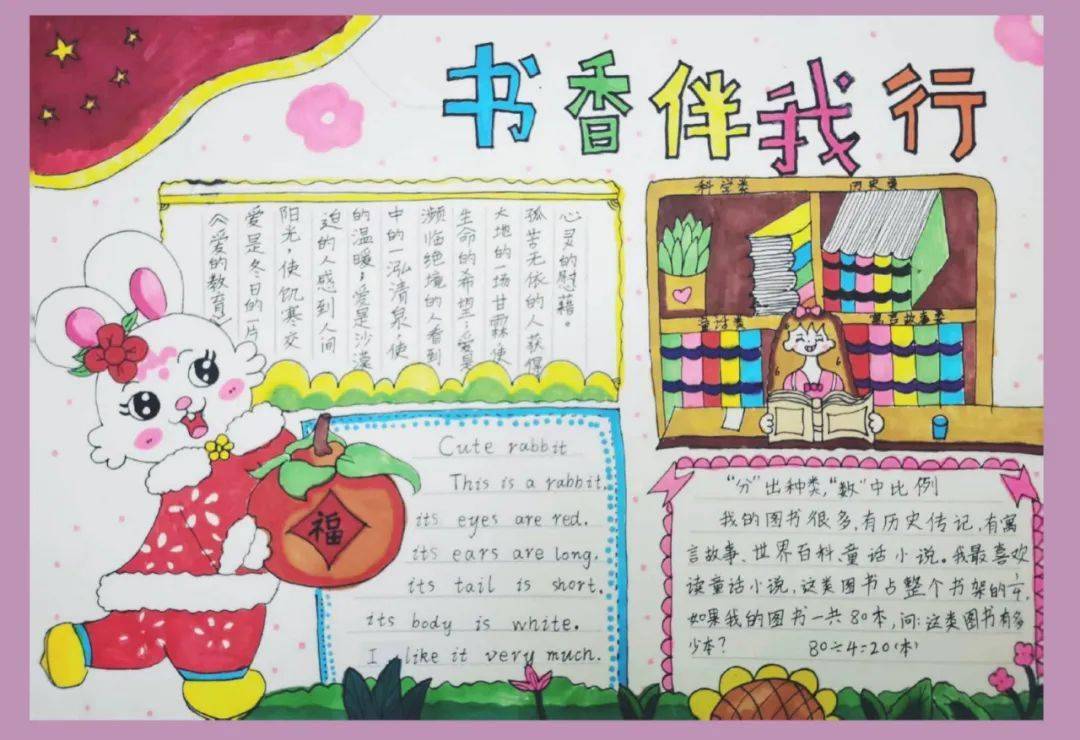 书香伴我行
《爱的教育》
爱是冬日的一片
阳光，使饥寒交
迫的人感到人间
的温暖；爱是沙漠
中的一泓清泉，使
濒临绝境的人看到
生命的希望；爱是
大地的一场甘霖，使
孤苦无依的人获得
心灵的慰藉。
科学类
历史类
童话类
寓言故事类
福
Cute rabbit
This is a rabbit
its eyes are red.
its ears are long.
its tail is short.
its body is white.
I like it very much.
“分”出种类，“数”中比例
我的图书很多，有历史传记，有寓
言故事、世界百科、童话小说。我最喜欢
读童话小说，这类图书占整个书架的
如果我的图书一共80本，问：这类图书有多
少本？ 80÷4=20(本)